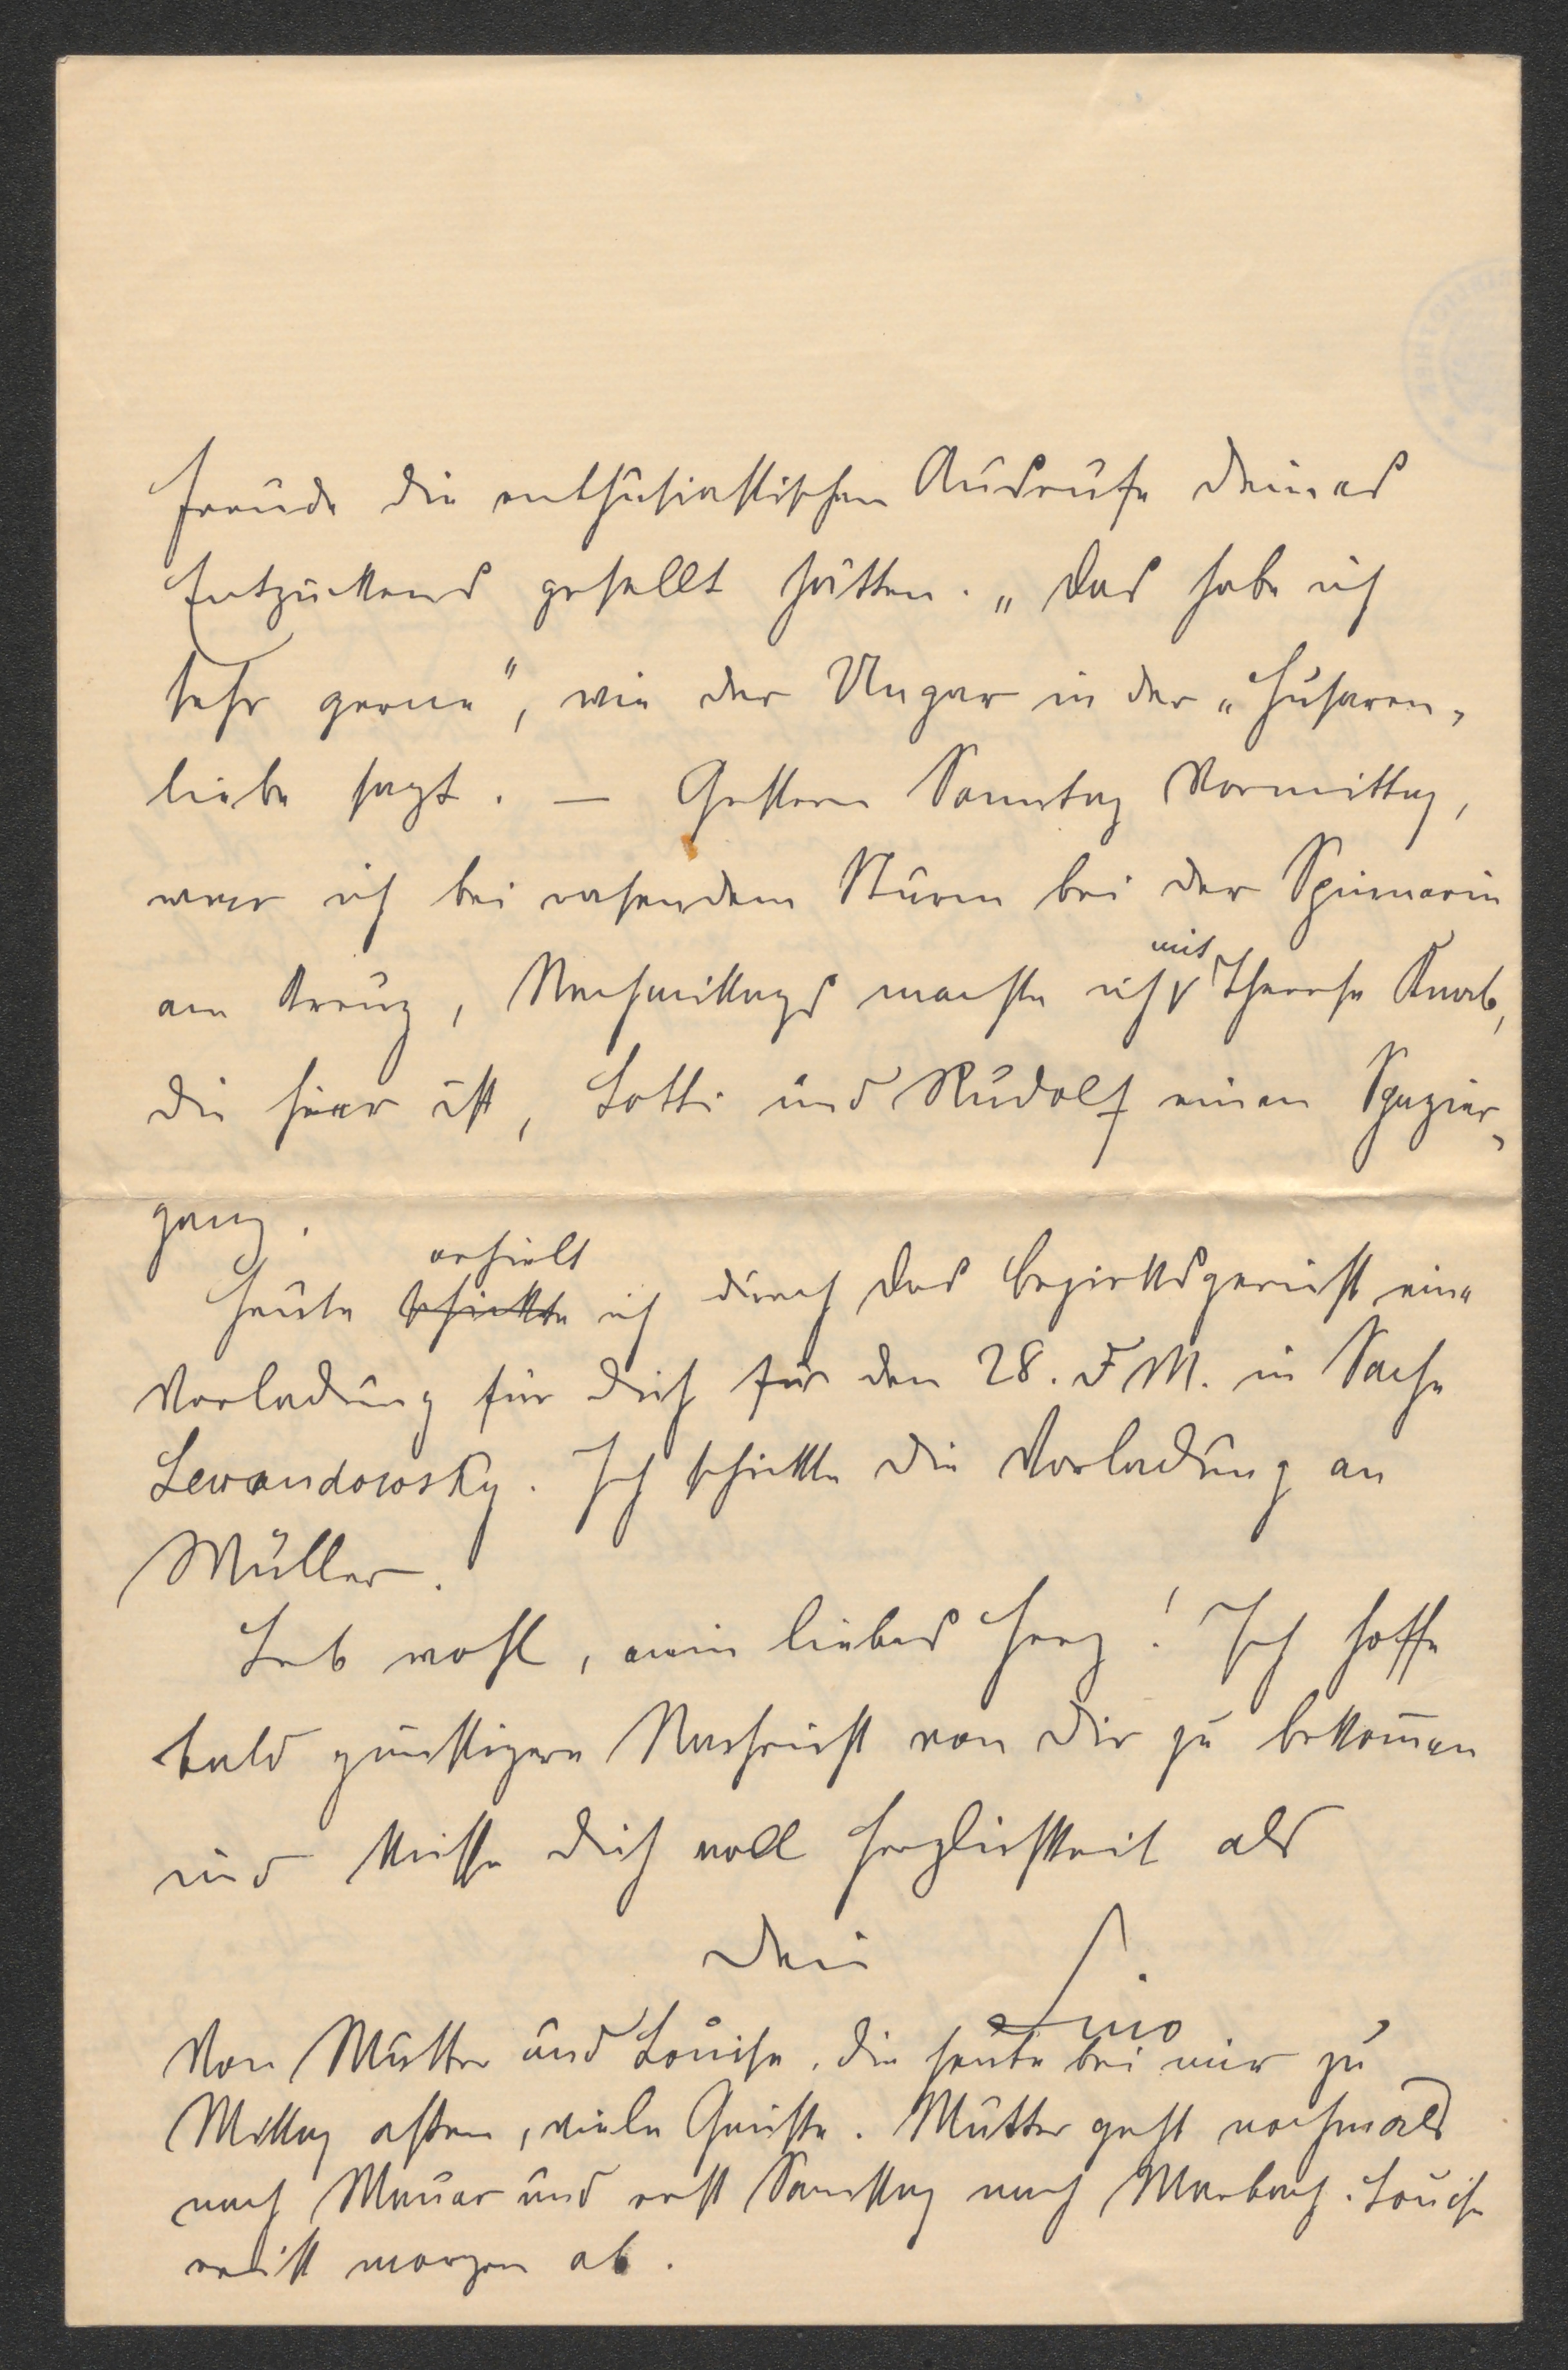 Freude die enthusiastischen Ausrufe Deines
Entzückens gesellt hätten. „Das habe ich
sehr gerne", wie der Ungar in der „Husaren-
liebe sagt. — Gestern Sonntag Vormittag,
war ich bei rasendem Sturm bei der Spinnerin
am Kreuz, Nachmittags machte ich mit Therese Knab,
die hier ist, Lotti und Rudolf einen Spazier-
gang.
Heute schickte erhielt ich durch das Bezirksgericht eine
Vorladung für Dich für den 28. d M. in Sache
Lewandowsky. Ich schickte die Vorladung an
Müller.
Leb wohl, mein liebes Herz! Ich hoffe
bald günstigere Nachricht von Dir zu bekom̄en
und küsse Dich voll Herzlichkeit als
Dein Lino
Von Mutter und Louise, die heute bei mir zu
Mittag aßen, viele Grüße. Mutter geht nochmals
nach Mauer und erst Samstag nach Marbach. Louise
reist morgen ab.